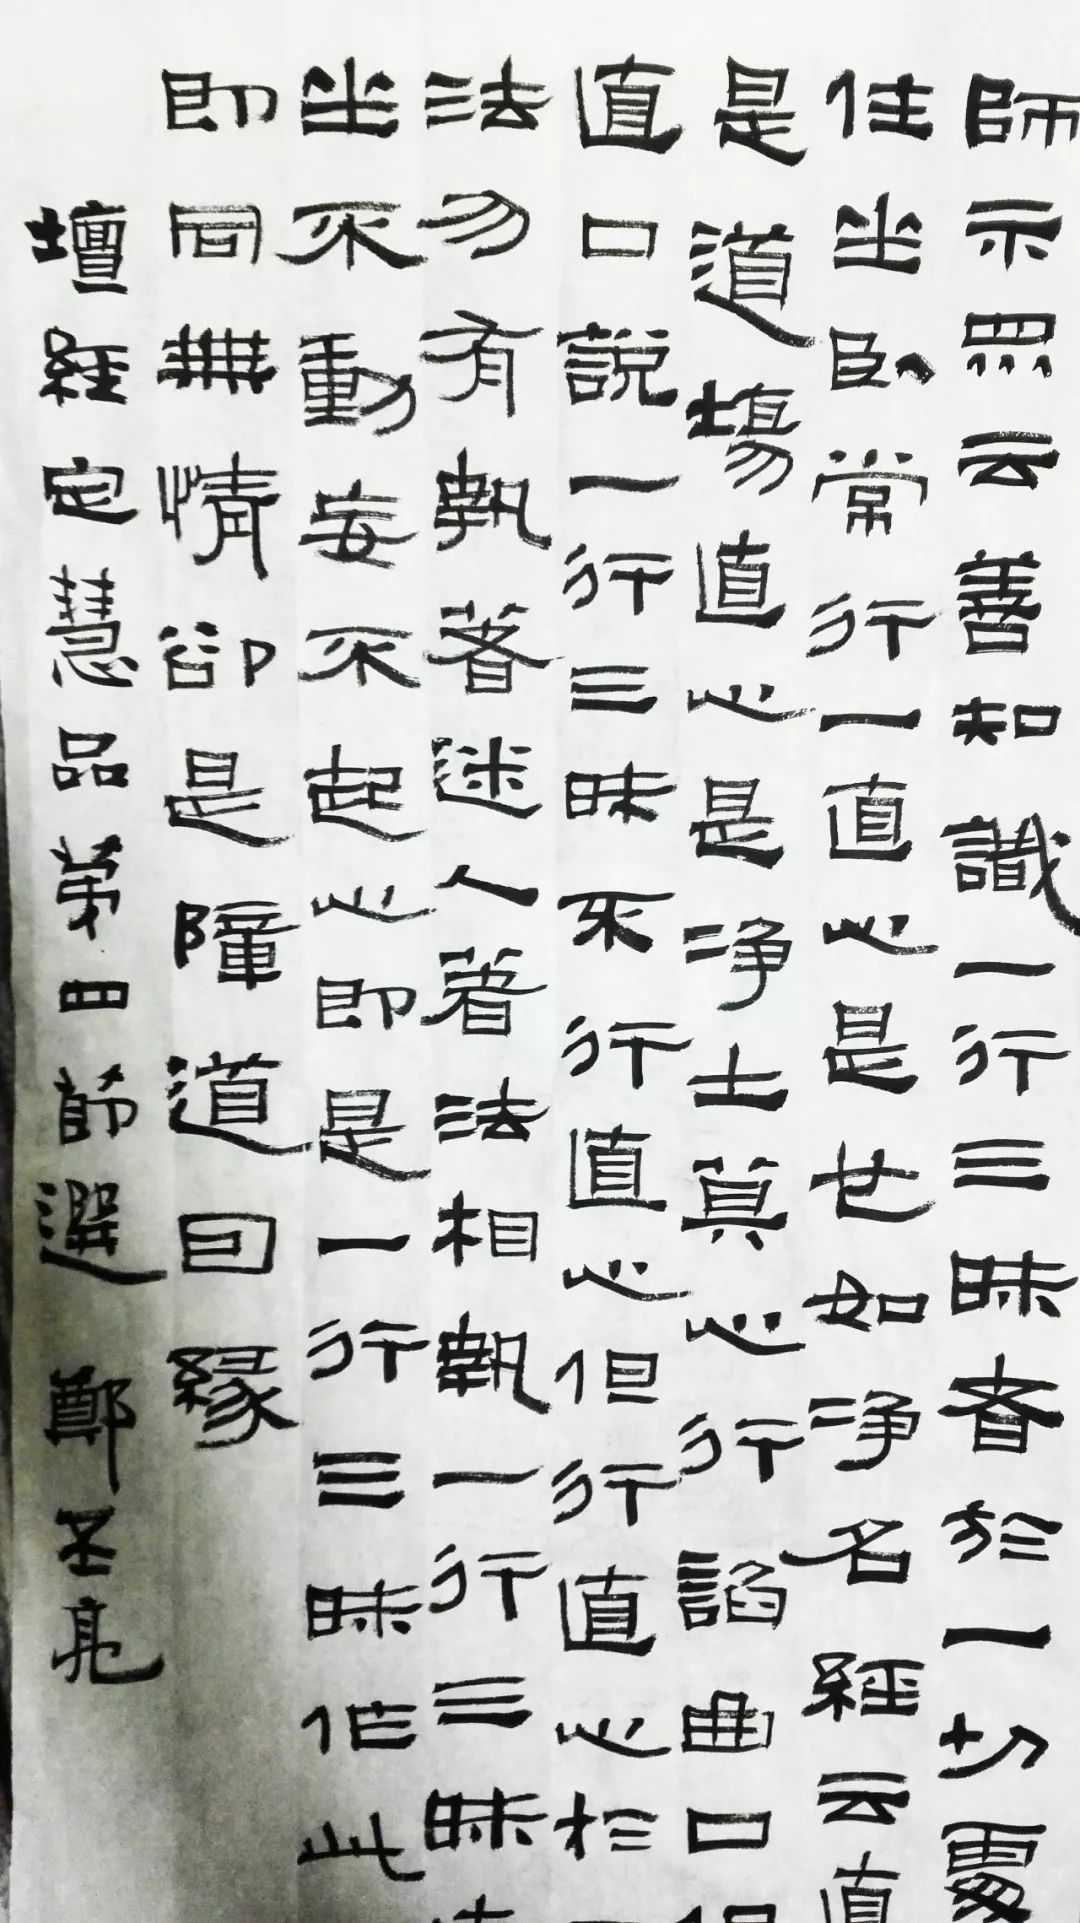 師示眾云善知識一行三昧者於一切處
住坐卧常行一直心是也如净名經云直
是道場直心是净土莫心行諂曲口
直口說一行三昧不行直心但行直心於
法勿有執著迷人著法相執一行三昧
坐不動妄不起心即是一行三昧作此
即同無情卻是障道因緣
壇經定慧品第四節選 鄭圣亮